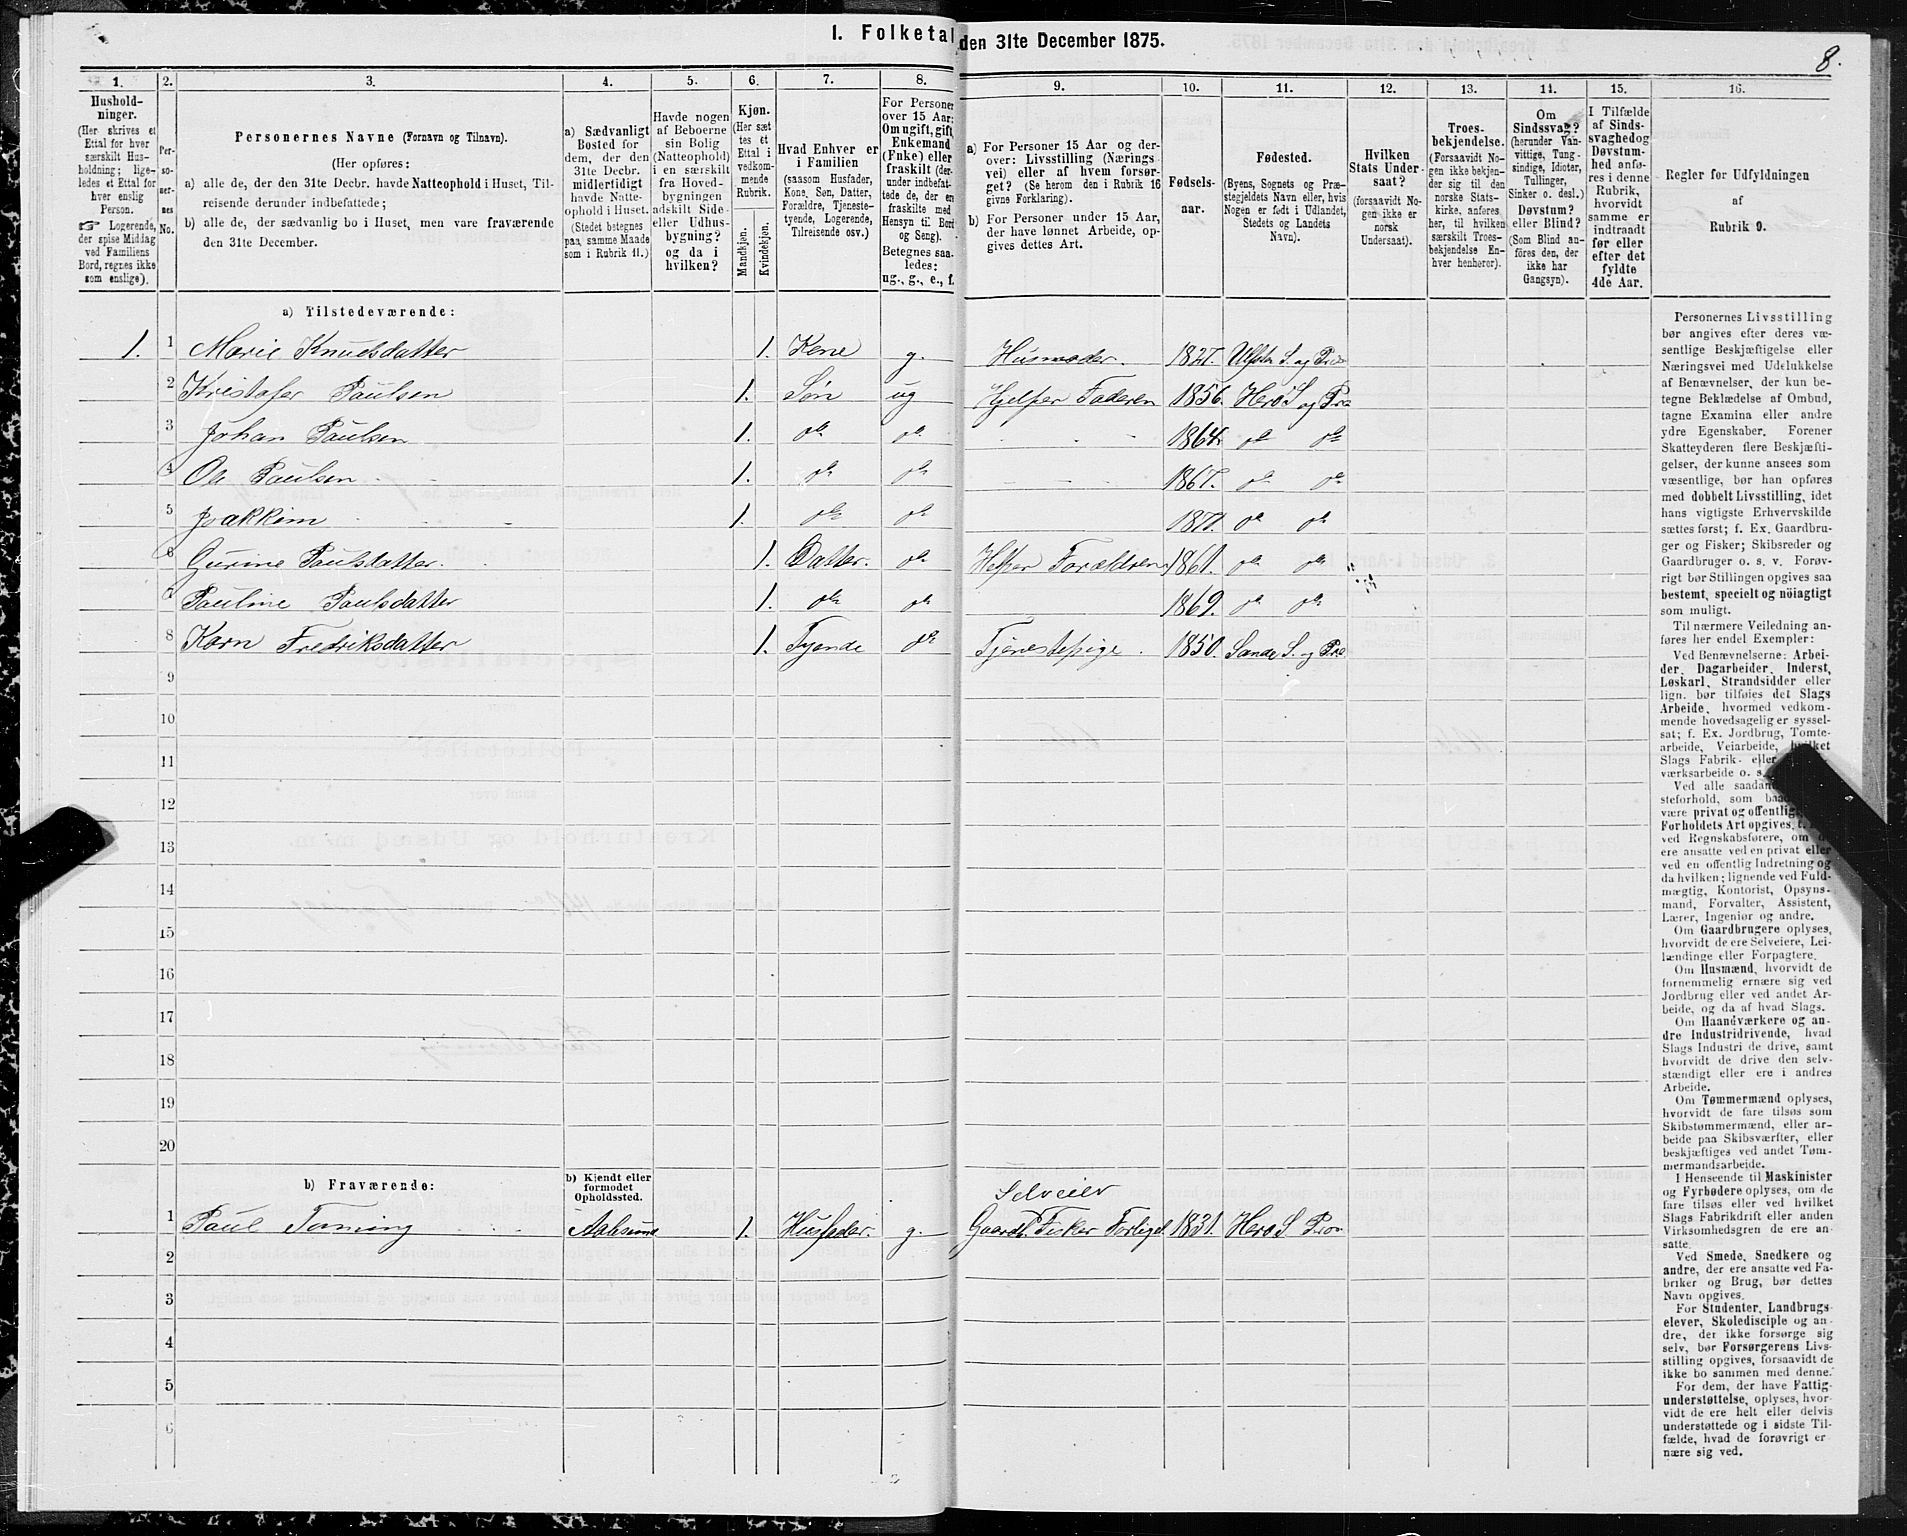 I. Folketal den 31te December 1875.
8.
1. 2. 3. 4. 5. 6. 7. 8. 9. 10. 11. 12. 13. 14. 15. 16.
Hushold-
ninger.
(Her skrives et
Ettal for hver
særskilt Hus-
holdning; lige-
ledes et Ettal for
hver enslig
Person.
☞ Logerende,
der spise Middag
ved Familiens
Bord, regnes ikke
som enslige).
Per-
so-
ner-
nes
No.
Personernes Navne (Fornavn og Tilnavn).
(Her opføres:
a) alle de, der den 31te Decbr. havde Natteophold i Huset, Til-
reisende derunder indbefattede;
b) alle de, der sædvanlig bo i Huset, men vare fraværende
den 31te December.
a) Sædvanligt
Bosted for
dem, der den
31te Decbr.
midlertidigt
havde Natte-
ophold i Huset.
(Stedet betegnes
paa samme Maade
som i Rubrik 11.)
Havde nogen
af Beboerne
sin Bolig
(Natteophold)
i en særskilt
fra Hoved-
bygningen
adskilt Side-
eller Udhus-
bygning?
og da i
hvilken?
Kjøn.
(Her sæt-
tes et
Ettal i
vedkom-
mende
Rubrik.
Mandkjøn.
Kvindekjøn.
Hvad Enhver er
i Familien
(saasom Husfader,
Kone, Søn, Datter,
Forældre, Tjeneste-
tyende, Logerende,
Tilreisende osv.)
For Personer
over 15 Aar:
Om ugift, gift,
Enkemand
(Enke) eller
fraskilt (der-
under indbefat-
tede de, der ere
fraskilte med
Hensyn til Bord
og Seng).
Betegnes saa-
ledes:
ug., g., e., f.
a) For Personer 15 Aar og der-
over: Livsstilling (Nærings-
vei) eller af hvem forsør-
get? (Se herom den i Rubrik 16
givne Forklaring).
b) For Personer under 15 Aar,
der have lønnet Arbeide, op-
gives dettes Art.
Fødsels-
aar.
Fødested.
(Byens, Sognets og Præ-
stegjeldets Navn eller, hvis
Nogen er født i Udlandet,
Stedets og Landets
Navn).
Hvilken
Stats Under-
saat?
(forsaavidt No-
gen ikke er
norsk
Undersaat).
Troes-
bekjendelse.
(Forsaavidt No-
gen ikke bekjen-
der sig til den
norske Stats-
kirke, anføres
her, til hvilken
særskilt Troes-
bekjendelse En-
hver henhører).
Om
Sindssvag?
(herunder Van-
vittige, Tung-
sindige, Idioter,
Tullinger,
Sinker o. desl.)
Døvstum?
eller Blind?
(Som Blind an-
føres den, der
ikke har
Gangsyn).
I Tilfælde
af Sinds-
svaghed og
Døvstum-
hed anfø-
res i denne
Rubrik,
hvorvidt
samme er
indtraadt
før eller
efter det
fyldte
4de Aar.
Regler for Udfyldningen
af
Rubrik 9.
a) Tilstedeværende:
1. 1 Marie Knudsdatter 1. Kone g. Husmoder. 1827. Ulfsten S. og Præ
2 Kristofer Paulsen 1. Søn ug Hjelper Faderen 1856. Herø S og Præ
3 Johan Paulsen 1. do do - - 1864. do do
4 Ole Paulsen 1. do do - - 1867. do do
5 Joakkim 1. do do 1871. do do
6 Gurine Paulsdatter. 1. Datter. do Helper Forældren. 1861. do do
7 Pauline Paulsdatter 1. do do 1869. do do
8 Karn Fredriksdatter 1. Tyende do Tjenestepige. 1850. Sande S. og Præ
9
10
11
12
13
14
15
16
17
18
19
20
b) Fraværende:
b) Kjendt eller
formodet
Opholdssted.
Selveier
1 Paul Tarning Aalesund 1. Husfader. g. Gaardb. Fisker 1831. Herø S. Præ
2
3
4
5
6
Personernes Livsstilling
bør angives efter deres væ-
sentlige Beskjæftigelse eller
Næringsvei med Udelukkelse
af Benævnelser, der kun be-
tegne Beklædelse af Ombud,
tagne Examina eller andre
ydre Egenskaber. Forener
Skatteyderen flere Beskjæfti-
gelser, der kunne ansees som
væsentlige, bør han opføres
med dobbelt Livsstilling, idet
hans vigtigste Erhvervskilde
sættes først; f. Ex. Gaardbru-
ger og Fisker; Skibsreder og
Gaardbruger o. s. v. Forøv-
rigt bør Stillingen opgives saa
bestemt, specielt og nöiagtigt
som muligt.
Til nærmere Veiledning an-
føres her endel Exempler:
Ved Benævnelserne: Arbei-
der, Dagarbeider, Inderst,
Løskarl, Strandsidder eller
lign. bør tilføies det Slags
Arbeide, hvormed vedkom-
mende hovedsagelig er syssel-
sat; f. Ex. Jordbrug, Tomte-
arbeide, Veiarbeide, hvilket
Slags Fabrik- eller
værksarbeide o. s.
Ved alle saadan
steforhold, som baa
være privat og offentlig,
Forholdets Art opgives, t.
ved Regnskabsførere, om de
ere ansatte ved en privat eller
ved en offentlig Indretning og
da hvilken; lignende ved Fuld-
mægtig, Kontorist, Opsyns-
mand, Forvalter, Assistent,
Lærer, Ingeniør og andre.
Om Gaardbrugere oplyses,
hvorvidt de ere Selveiere, Lei-
lændinge eller Forpagtere.
Om Husmænd, hvorvidt de
fornemmelig ernære sig ved
Jordbrug eller ved andet Ar-
beide, og da af hvad Slags.
Om Haandværkere og an-
dre Industridrivende, hvad
Slags Industri de drive, samt
hvorvidt de drive den selv-
stændigt eller ere i andres
Arbeide.
Om Tømmermænd oplyses,
hvorvidt de fare tilsøs som
Skibstømmermænd, eller ar-
beide paa Skibsværfter, eller
beskjæftiges ved andet Tøm-
mermandsarbeide.
I Henseende til Maskinister
og Fyrbødere oplyses, om de
fare tilsøs eller ved hvilket
Slags Fabrikdrift eller anden
Virksomhedsgren de ere an-
satte.
Ved Smede, Snedkere og
andre, der ere ansatte ved Fa-
briker og Brug, bør dettes
Navn opgives.
For Studenter, Landbrugs-
elever, Skoledisciple og an-
dre, der ikke forsørge sig
selv, bør Forsørgerens Livs-
stilling opgives, forsaavidt de
ikke bo sammen med denne.
For dem, der have Fattig-
understøttelse, oplyses, hvor-
vidt de ere helt eller delvis
understøttede og i sidste Til-
fælde, hvad de forøvrigt er-
nære sig ved.